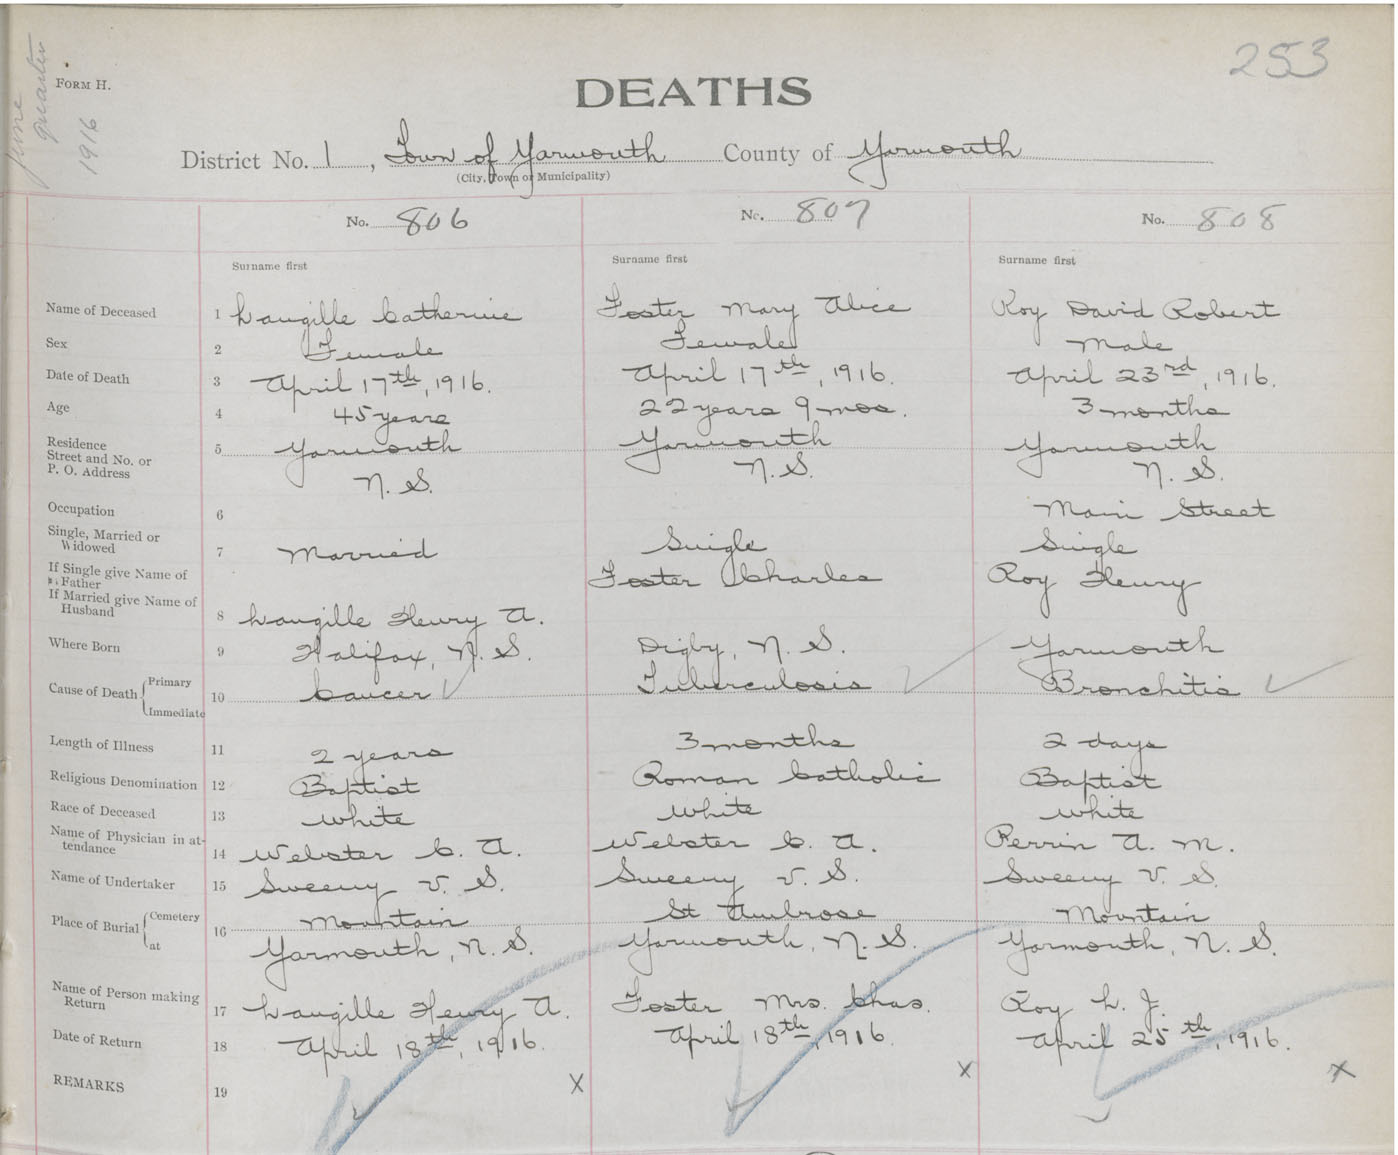 253
June
quarter
1916
FORM H.
DEATHS
District No. 1, Town of Yarmouth County of Yarmouth
(City, Town or Municipality)
No. 806 No. 807 No. 808
Surname first Surname first Surname first
Name of Deceased 1 Langille Catherine Foster Mary Alice Roy David Robert
Sex 2 Female Female Male
Date of Death 3 April 17th, 1916. April 17th, 1916. April 23rd, 1916.
Age 4 45 years 22 years 9 mos. 3 months
Residence 5 Yarmouth Yarmouth Yarmouth
Street and No. or
P. O. Address N. S. N. S. N. S.
Occupation 6 Main Street
Single, Married or
Widowed 7 Married Single Single
If Single give Name of
Father Foster Charles Roy Henry
If Married give Name of
Husband 8 Langille Henry A.
Where Born 9 Halifax, N. S. Digby, N. S. Yarmouth
Cause of Death Primary 10 Cancer Tuberculosis Bronchitis
Immediate
Length of Illness 11 2 years 3 months 2 days
Religious Denomination 12 Baptist Roman Catholic Baptist
Race of Deceased 13 White White White
Name of Physician in at-
tendance 14 Webster C. A. Webster C. A. Perrin A. M.
Name of Undertaker 15 Sweeny V. S. Sweeny V. S. Sweeny V. S.
Place of Burial Cemetery 16 Mountain St Ambrose Mountain
at Yarmouth, N. S. Yarmouth, N. S. Yarmouth, N. S.
Name of Person making
Return 17 Langille Henry A. Foster Mrs. Chas. Roy L. J.
Date of Return 18 April 18th, 1916. April 18th, 1916. April 25th, 1916.
REMARKS 19 X X X